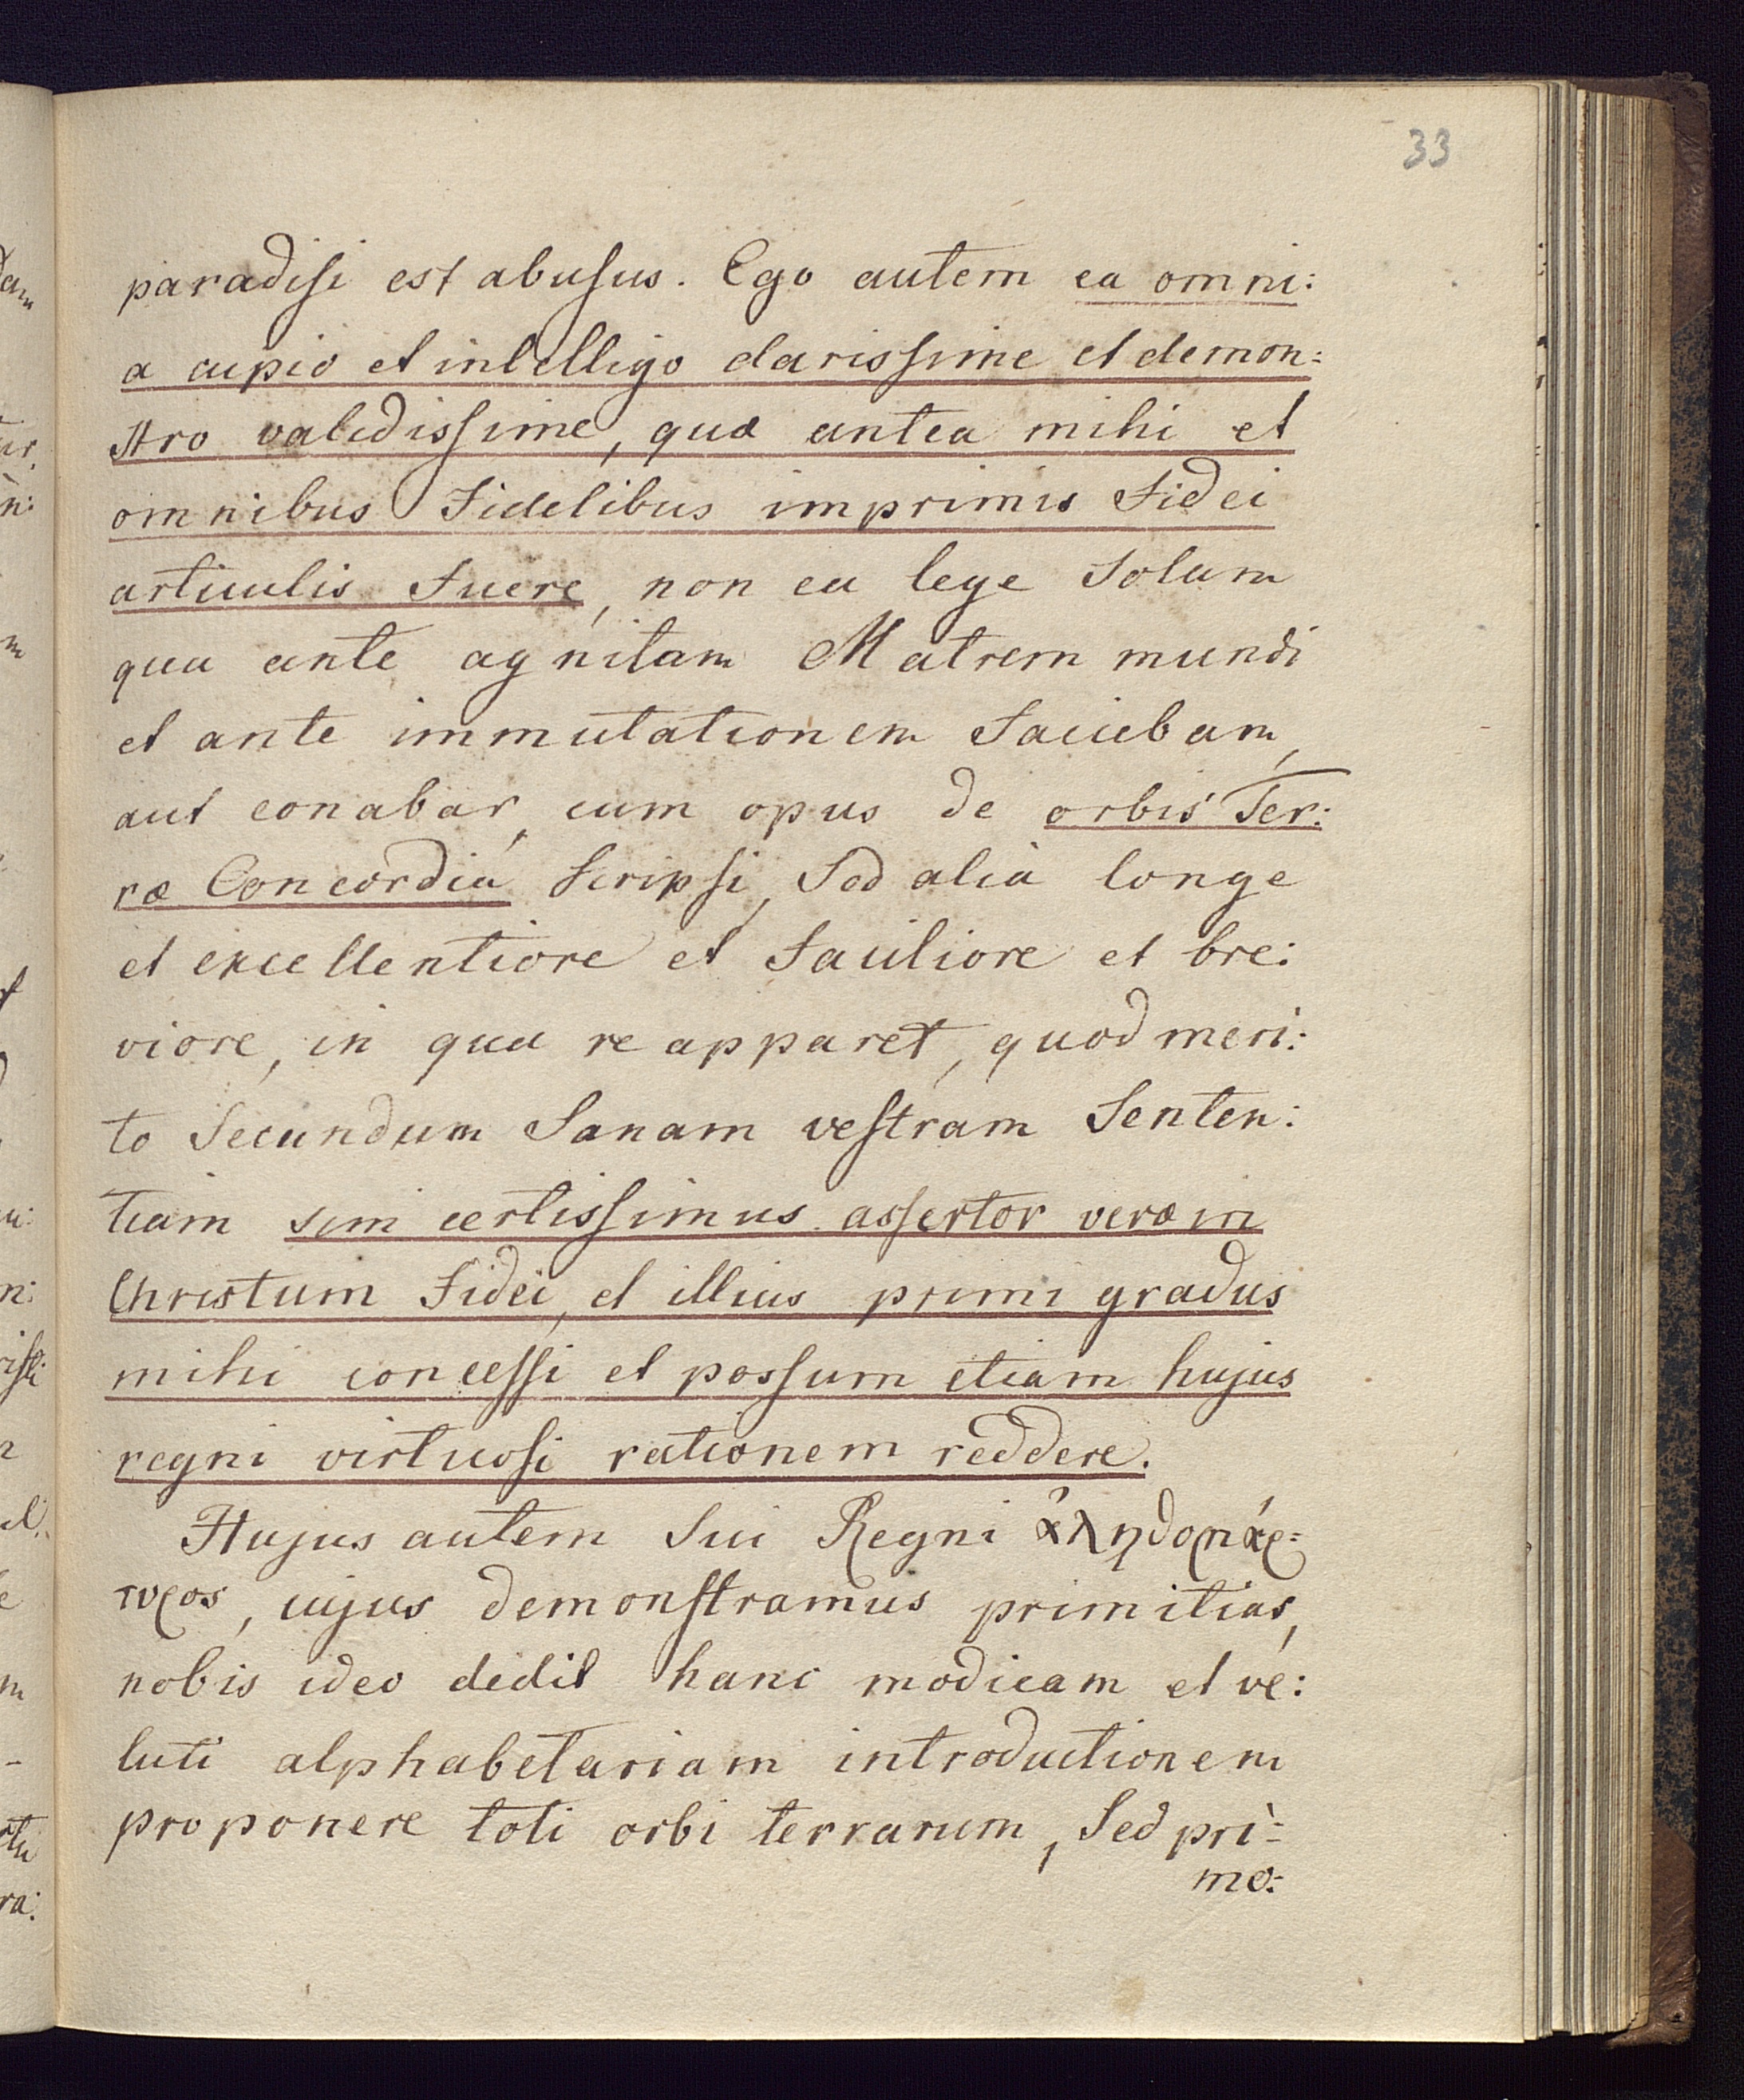 33
paradisi est abusus. Ego autem ea omni:
a cupio et intelligo clarissime et demon:
stro validissime, quæ antea mihi et
omnibus Fidelibus imprimis Fidei
articulis Fuere, non ea lege Solum
qua ante agnitam Matrem mundi
et ante immutationem Faciebam,
aut conabar, cum opus de orbis Ter:
ræ Concordia Scripsi, Sed alia longe
et excellentiore et Faciliore et bre:
viore, in qua re apparet, quod meri:
to Secundum Sanam vestram Senten:
tiam sim certissimus assertor veræ in
Christum Fidei, et illius primi gradus
mihi concessi et possum etiam hujus
regni virtuosi rationem reddere.
Hujus autem Sui Regni
cujus demonstramus primitias,
nobis ideo dedit hanc modicam et ve:
luti alphabetariam introductionem
proponere toti orbi terrarum, Sed pri=
mo: